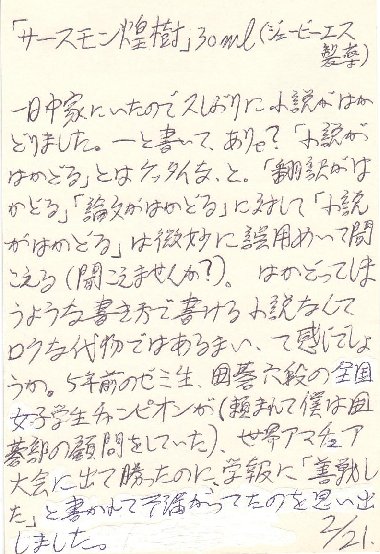 「サースモン煌樹」30ml(ジェーピーエス
製薬)
一日中家にいたので久しぶりに小説がはか
どりました。―と書いて、ありゃ?「小説が
はかどる」とはケッタイな、と。「翻訳がは
かどる」「論文がはかどる」に対して「小説
がはかどる」は微妙に誤用めいて聞
こえる(聞こえませんか?)。はかどってしま
うような書き方で書ける小説なんて
ロクな代物ではあるまい、て感じでしょ
うか。5年前のゼミ生、囲碁六段の全国
女子学生チャンピオンが(頼まれて僕は囲
碁部の顧問をしていた)、世界アマチュア
大会に出て勝ったのに、学報に「善戦し
た」と書かれて不満がってたのを思い出
しました。
2/21.